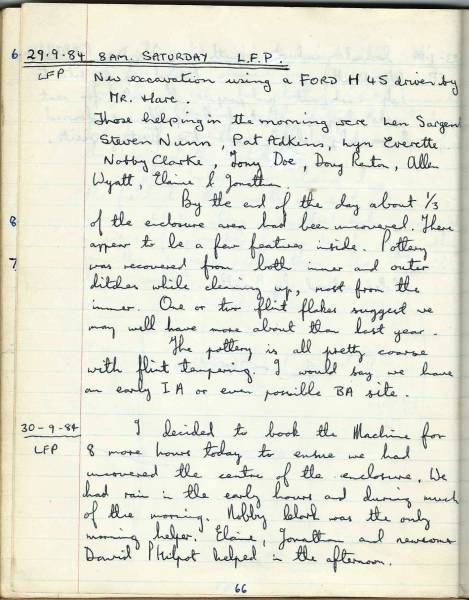 6 29.9.84 8AM. SATURDAY L.F.P.
LFP New excavation using a FORD H 45 driven by
Mr. Hare.
Those helping in the morning were Len Sargent
Steven Nunn, Pat Adkins, Lyn Everette
Nobby Clarke, Tony Doe, Doug Renton, Allen
Wyatt, Elaine & Jonathan.
By the end of the day about 1/3
8 of the enclosure area had been uncovered. There
appear to be a few features inside. Pottery
7 was recovered from both inner and outer
ditches while cleaning up, most from the
inner. One or two flint flakes suggest we
may well have more about than last year.
The pottery is all pretty coarse
with flint tempering. I would say we have
an early IA or even possible BA site.
30-9-84 I decided to book the Machine for
LFP 8 more hours today to ensure we had
uncovered the centre of the enclosure. We
had rain in the early hours and during much
of the morning. Nobby Clark was the only
morning helper. Elaine, Jonathan and newcomer
David Philpot helped in the afternoon.
66